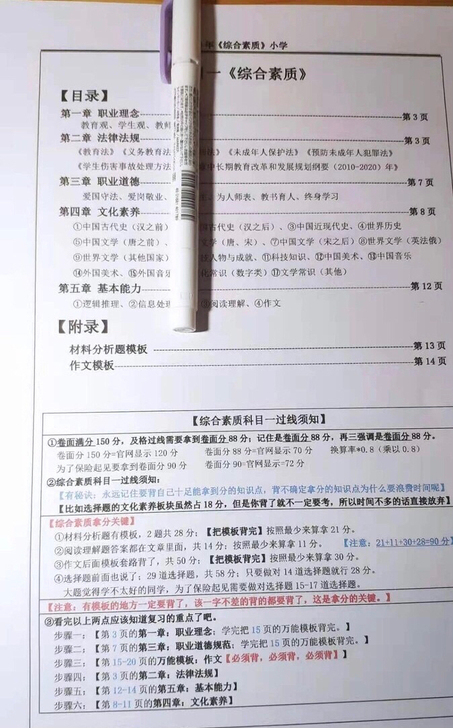 年《综合素质》小学
一《综合素质》
【目录】
第一章 职业理念 第 3 页
教育观、学生观、教师
第二章 法律法规 第 3 页
《教育法》《义务教育法 法》《未成年人保护法》《预防未成年人犯罪法》
《学生伤害事故处理方法 中长期教育改革和发展规划纲要（2010-2020）年》
第三章 职业道德 第 7 页
爱国守法、爱岗敬业、 为人师表、教书育人、终身学习
第四章 文化素养 第 8 页
①中国古代史（汉之前） 古代史（汉之后）、③中国近现代史、④世界历史
⑤中国文学（唐之前）、 文学（唐、宋）、⑦中国文学（宋之后）⑧世界文学（英法俄）
⑨世界文学（其他国家） 人物与成就、⑪科技知识、⑫中国美术、⑬中国音乐
⑭外国美术、⑮外国音乐 化常识（数字类）⑰文学常识（其他）
第五章 基本能力 第 12 页
①逻辑推理、②信息处理 ③阅读理解、④作文
【附录】
材料分析题模板 第 13 页
作文模板 第 14 页
【综合素质科目一过线须知】
①卷面满分 150 分，及格过线需要拿到卷面分 88 分；记住是卷面分 88 分，再三强调是卷面分 88 分。
卷面分 150 分=官网显示 120 分 卷面分 88 分=官网显示 70 分 换算率*0.8（乘以 0.8）
为了保险起见要拿到卷面分 90 分 卷面分 90=官网显示=72 分
②综合素质科目一过线须知：
【有秘诀：永远记住要背自己十足能拿到分的知识点，背不确定拿分的知识点为什么要浪费时间呢】
【比如选择题的文化素养板块虽然占 18 分，但是你背了就不一定要考，所以时间不多的话直接放弃】
【综合素质拿分关键】
①材料分析题有模板，2 题共 28 分；【把模板背完】按照最少来算拿 21 分。
②阅读理解题答案都在文章里面，共 14 分；按照最少来算拿 11 分。 【注意：21+11+30+28=90 分】
③作文后面模板套路背了，共 50 分；【把模板背完】按照最少来算拿 30 分。
④选择题前面也说了；29 道选择题，共 58 分；只要做对 14 道选择题就行 28 分。
大题觉得学不太好的同学，为了保险起见需要做对选择题 15-17 道选择题。
【注意：有模板的地方一定要背了，该一字不差的背的都要背了，这是拿分的关键。】
③看完以上两点应该知道复习的重点了吧。
步骤一：【第 3 页的第一章：职业理念；学完把 15 页的万能模板背完。】
步骤二：【第 7 页的第三章：职业道德规范；学完把 15 页的万能模板背完。】
步骤三：【第 15-20 页的万能模板；作文【必须背，必须背，必须背】】
步骤四：【第 3 页的第二章：法律法规】
步骤五：【第 12-14 页的第五章：基本能力】
步骤六：【第 8-11 页的第四章：文化素养】